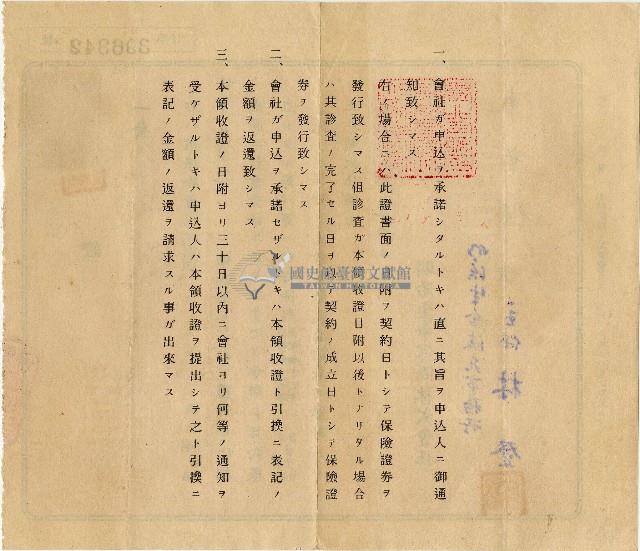 一、會社ガ申込ヲ承諾シタルトキハ直ニ其旨ヲ申込人ニ御通
知致シマス
右ノ場合ニハ此證書面ノ日附ヲ契約日トシテ保險證券ヲ
發行致シマス但診査ガ本領收證日附以後トナリタル場合
ハ其診査ノ完了セル日ヲ以テ契約ノ成立日トシテ保險證
券ヲ發行致シマス
二、會社ガ申込ヲ承諾セザルトキハ本領收證ト引換ニ表記ノ
金額ヲ返還致シマス
三、本領收證ノ日附ヨリ三十日以內ニ會社ヨリ何等ノ通知ヲ
受ケザルトキハ申込人ハ本領收證ヲ提出シテ之ト引換ニ
表記ノ金額ノ返還ヲ請求スル事ガ出來マス
國史館臺灣文獻館
TAIWAN HISTORICA